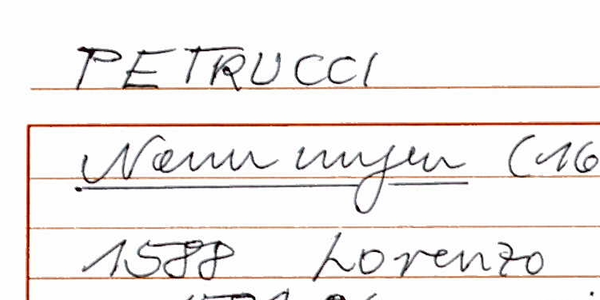 PETRUCCI
Nennungen (16
1588 Lorenzo